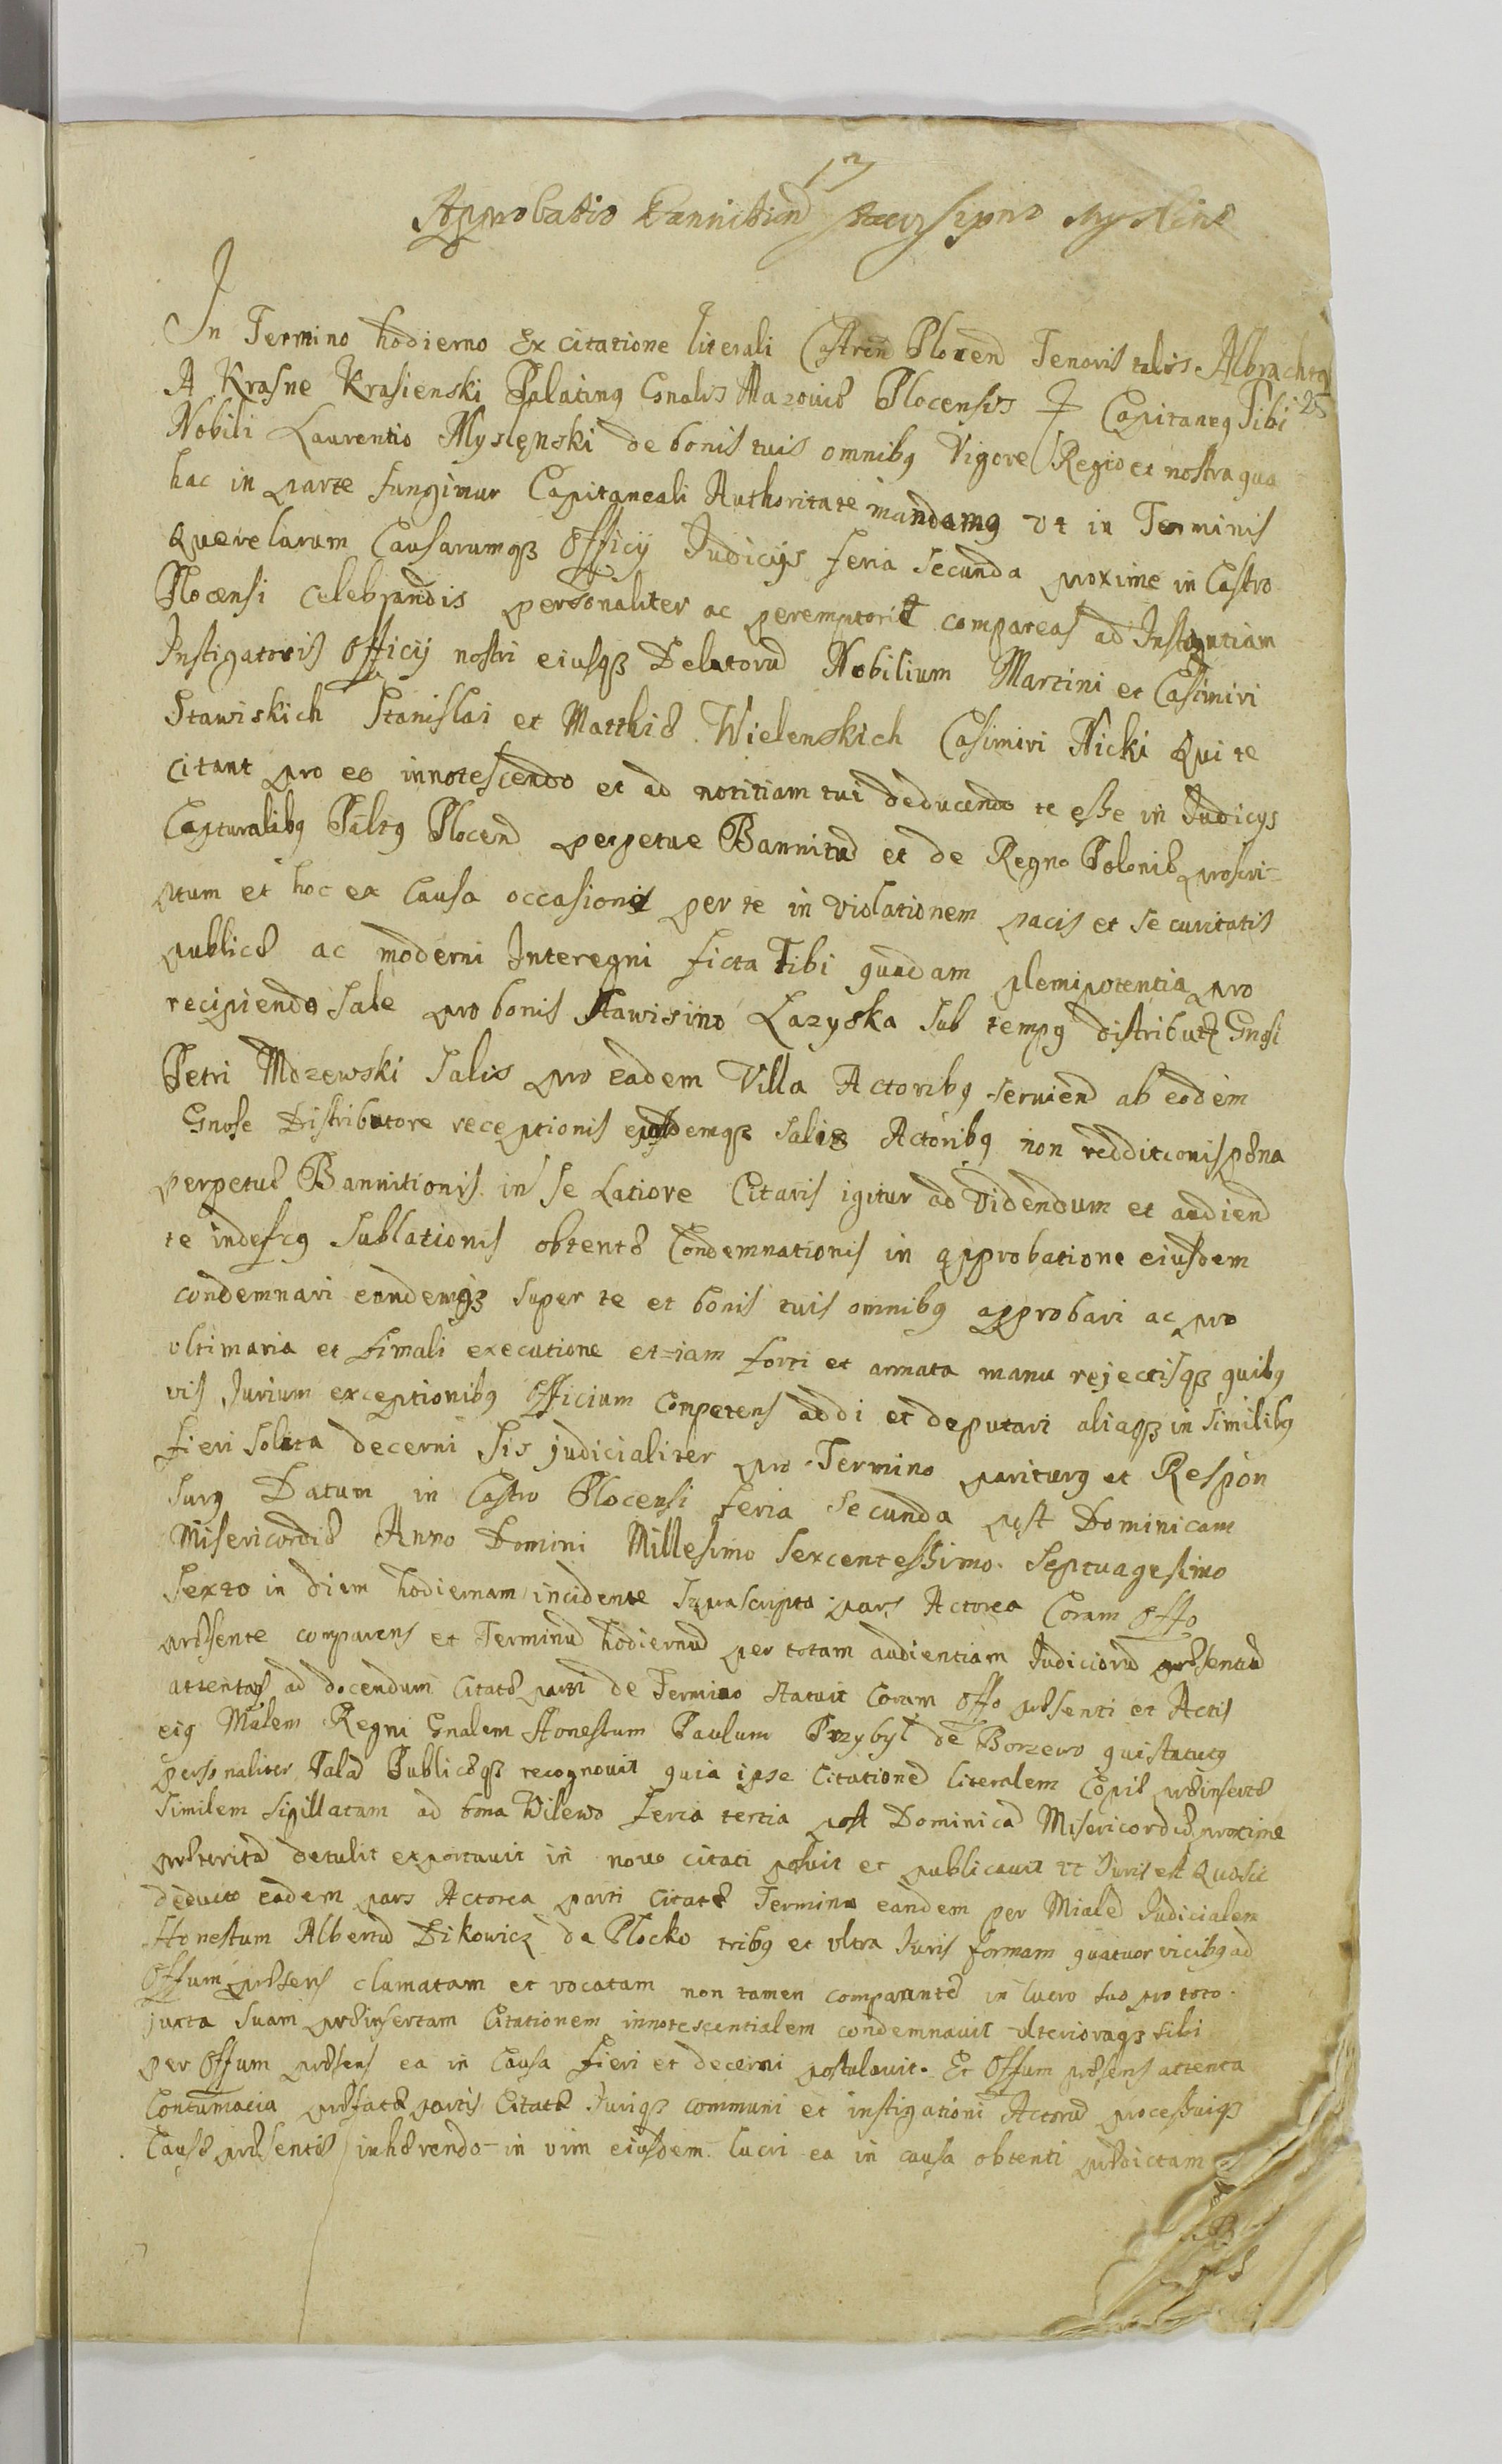 17
Approbatio Bannition
In Termino hodierno Ex citatione literali Castren Plocen Tenoris talis. Albrachtq
A Krasne Krasienski Palatinq Gnalis Mazovie Plocensis & Capitaneq Tibi 25
Nobili Laurentio Myslęnski de bonis tuis omnibq Vigore Regia et nostra qua
hac in parte fungimur Capitaneali Authoritate mandamq vt in Terminis
Querelarum Causarumqꝫ Officij Judicijs feria secunda proxime in Castro
Plocensi celebrandis personaliter ac peremptorie compareas ad Instantiam
Instigatoris Officij nostri eiusqꝫ Delatorū Nobilium Martini et Casimiri
Stawiskich Stanislai et Matthiæ Wielenskich Casimiri Nicki Qui te
citant pro eo innotescendo et ad notitiam tui deducendo te esse in Judicys
Capturalibq Paltq Plocen perpetue Bannitū et de Regno Poloniæ proscri=
ptum et hoc ex Causa occasionis per te in violationem pacis et securitatis
publicæ ac moderni Interegni ficta Tibi quadam plenipotentia pro
recipiendo Sale pro bonis Stawisino Lazyska sub tempq distributæ Gnosi
Petri Mdzewski Salis pro eadem Villa Actoribq seruien ab eodem
Gnose Distributore receptionis ejusdemqꝫ Salis Actoribq non redditionis pæna
perpetuæ Bannitionis in se Latiore Citaris igitur ad Videndum et audien
te indefcq Sublationis obtentæ Condemnationis in approbatione eiusdem
condemnari eandemqꝫ super te et bonis tuis omnibq approbari ac pro
vltimaria et finali executione et=iam forti et armata manu rejectisqꝫ quibq
vis Jurium exceptionibq Officium Competens addi et deputari aliaqꝫ in similibq
fieri solita decerni Sis judicialiter pro Termino pariturq et Respon
surq Datum in Castro Plocensi feria secunda post Dominicam
Misericordiæ Anno Domini Millesimo Sexcentessimo Septuagesimo
Sexto in diem hodiernam incidente suprascripta pars Actorea Coram Offo
præsente comparens et Terminū hodiernū per totam audientiam Judiciorū præsentiū
attentas ad docendum Citatæ parti de Termino statuit Coram Offo præsenti et Actis
eiq Mialem Regni Gnalem Honestum Paulum Przybył de Borzewo qui statutq
personaliter Palā Publiceqꝫ recognouit quia ipse Citationē literalem Copiæ præinsertæ
similem sigillatam ad bona Wilewo feria tertia post Dominicā Misericordiæ proxime
præteritā detulit exportauit in nouo citati posuit et publicauit vt Juris est Quo sic
deducto eadem pars Actorea parti Citatæ Termino eandem per Mialē Judicialem
Honestum Albertū Dikowicz de Plocko tribq et vltra Juris formam quatuor vicibq ad
Offum præsens clamatam et vocatam non tamen comparantē in lucro suo pro toto
juxta suam præinsertam Citationem innotescentialem condemnauit vlterioraqꝫ sibi
per Offum præsens ea in Causa fieri et decerni postulauit. Et Offum præsens attenta
Contumacia præfatæ partis Citatæ Juriqꝫ communi et instigationi Actorū processuiqꝫ
Causæ præsentis inhærendo in vim eiusdem lucri ea in causa obtenti prædictam